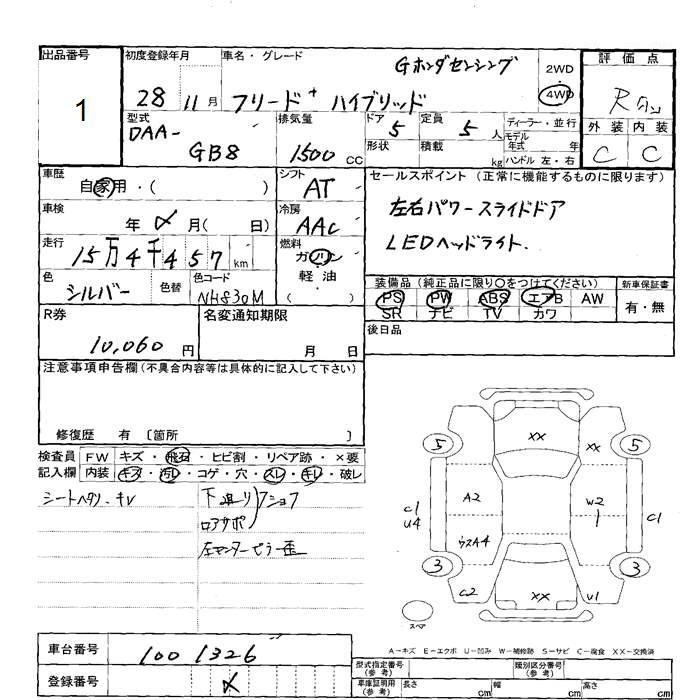 出品番号
1
初度登録年月
28 11月
車名・グレード
Gホンダセンシング
フリード+ ハイブリッド
2WD
・
4WD
評価点
R
外装 内装
C C
型式
DAA-
GB8
排気量
1500 cc
ドア
5
定員
5人
ディーラー・並行
モデル
年式 年
形状
積載 kg
ハンドル 左・右
車歴
自家用・( )
シフト
AT
車検
年 メ 月( 日)
冷房
AAC
走行
15万4千457km
燃料
ガソリン
軽油
( )
色
シルバー
色替
色コード
NH830M
セールスポイント(正常に機能するものに限ります)
左右パワースライドドア
LEDヘッドライト.
装備品(純正品に限り○をつけてください)
PS PW ABS エアB AW
SR ナビ TV カワ
新車保証書
有・無
R券
10,060円
名変通知期限
月 日
後日品
注意事項申告欄(不具合内容等は具体的に記入して下さい)
修復歴 有 〔箇所 〕
検査員 FW キズ・飛石・ヒビ割・リペア跡・×要
記入欄 内装 キズ・汚レ・コゲ・穴・スレ・キレ・破レ
シートヘタリ.キレ
下廻り
ロアサポ
XX
XX
5 5
A2
W2
C1
U4
C1
ウスA4
3 3
C2
XX
U1
スペア
A-キズ E-エクボ U-凹み W-補修跡 S-サビ C-腐食 XX-交換済
車台番号
1001326
登録番号
メ
型式指定番号
(参考)
類別区分番号
(参考)
車庫証明用
(参考)
長さ cm
幅 cm
高さ cm